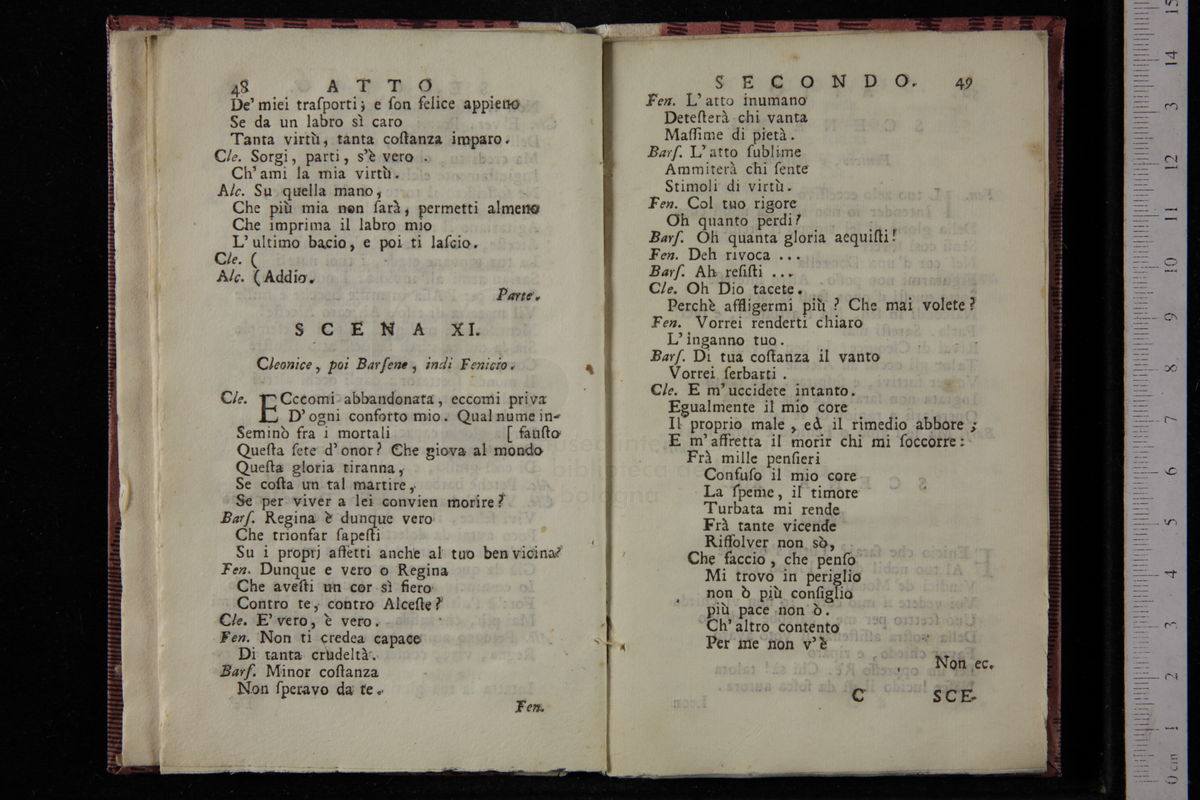 48 ATTO
De' miei traſporti; e ſon felice appieno
Se da un labro sì caro
Tanta virtù, tanta coſtanza imparo.
Cle. Sorgi, parti, s'è vero
Ch'ami la mia virtù.
Alc. Su quella mano,
Che più mia non ſarà, permetti almeno
Che imprima il labro mio
L'ultimo bacio, e poi ti laſcio.
Cle. (
Alc. (Addio.
Parte.
SCENA XI.
Cleonice, poi Barſene, indi Fenicio.
Cle. ECceomi abbandonata, eccomi priva
D'ogni conforto mio. Qual nume in-
Seminò fra i mortali [ fauſto
Queſta ſete d'onor? Che giova al mondo
Queſta gloria tiranna,
Se coſta un tal martire,
Se per viver a lei convien morire?
Barſ. Regina è dunque vero
Che trionfar ſapeſti
Su i proprj affetti anche al tuo ben vicina?
Fen. Dunque e vero o Regina
Che aveſti un cor sì fiero
Contro te, contro Alceſte?
Cle. E' vero, è vero.
Fen. Non ti credea capace
Di tanta crudeltà.
Barſ. Minor coſtanza
Non ſperavo da te.
Fen.
SECONDO. 49
Fen. L'atto inumano
Deteſterà chi vanta
Maſſime di pietà.
Barſ. L'atto ſublime
Ammiterà chi ſente
Stimoli di virtù.
Fen. Col tuo rigore
Oh quanto perdi?
Barſ. Oh quanta gloria acquiſti!
Fen. Deh rivoca ...
Barſ. Ah reſiſti ...
Cle. Oh Dio tacete.
Perchè affligermi più? Che mai volete?
Fen. Vorrei renderti chiaro
L'inganno tuo.
Barſ. Di tua coſtanza il vanto
Vorrei ſerbarti.
Cle. E m'uccidete intanto.
Egualmente il mio core
Il proprio male, ed il rimedio abbore;
E m'affretta il morir chi mi ſoccorre:
Frà mille penſieri
Confuſo il mio core
La ſpeme, il timore
Turbata mi rende
Frà tante vicende
Riſſolver non sò,
Che faccio, che penſo
Mi trovo in periglio
non ò più conſiglio
più pace non ò.
Ch'altro contento
Per me non v'è
Non ec.
C SCE-